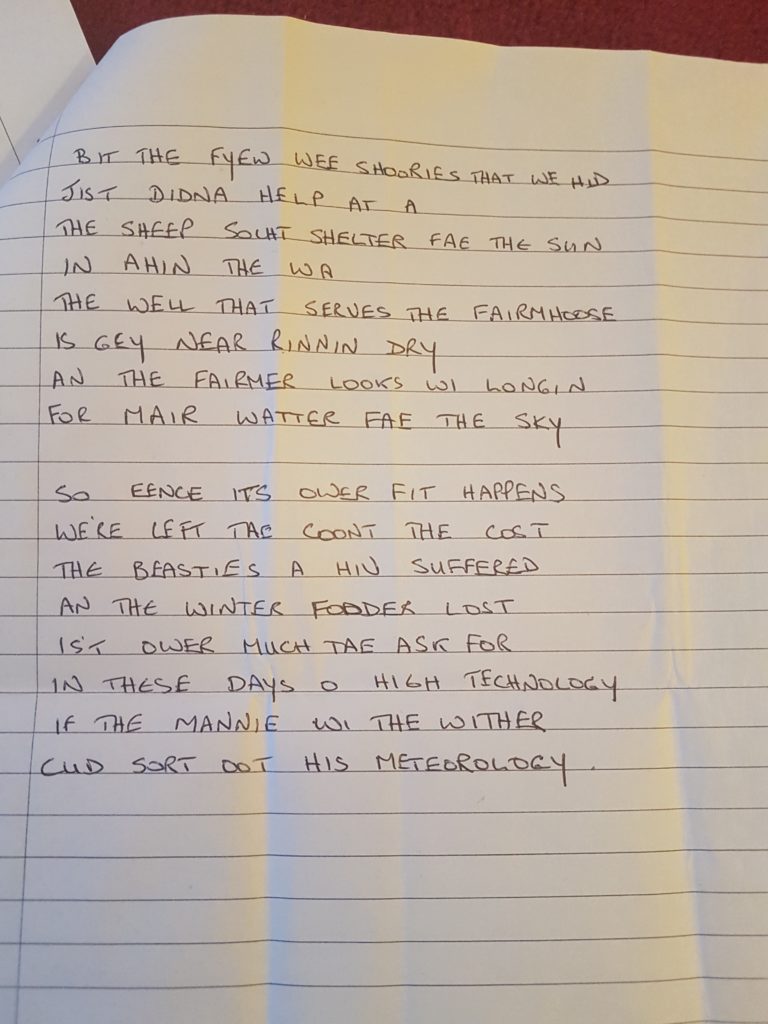 BIT THE FYEW WEE SHOORIES THAT WE HID
JIST DIDNA HELP AT A
THE SHEEP SOCHT SHELTER FAE THE SUN
IN AHIN THE WA
THE WELL THAT SERVES THE FAIRMHOOSE
IS GEY NEAR RINNIN DRY
AN THE FAIRMER LOOKS WI LONGIN
FOR MAIR WATTER FAE THE SKY

SO EENCE ITS OWER FIT HAPPENS
WE'RE LEFT TAE COONT THE COST
THE BEASTIES A HIV SUFFERED
AN THE WINTER FODDER LOST
IS'T OWER MUCH TAE ASK FOR
IN THESE DAYS O HIGH TECHNOLOGY
IF THE MANNIE WI THE WITHER
CUD SORT OOT HIS METEOROLOGY.